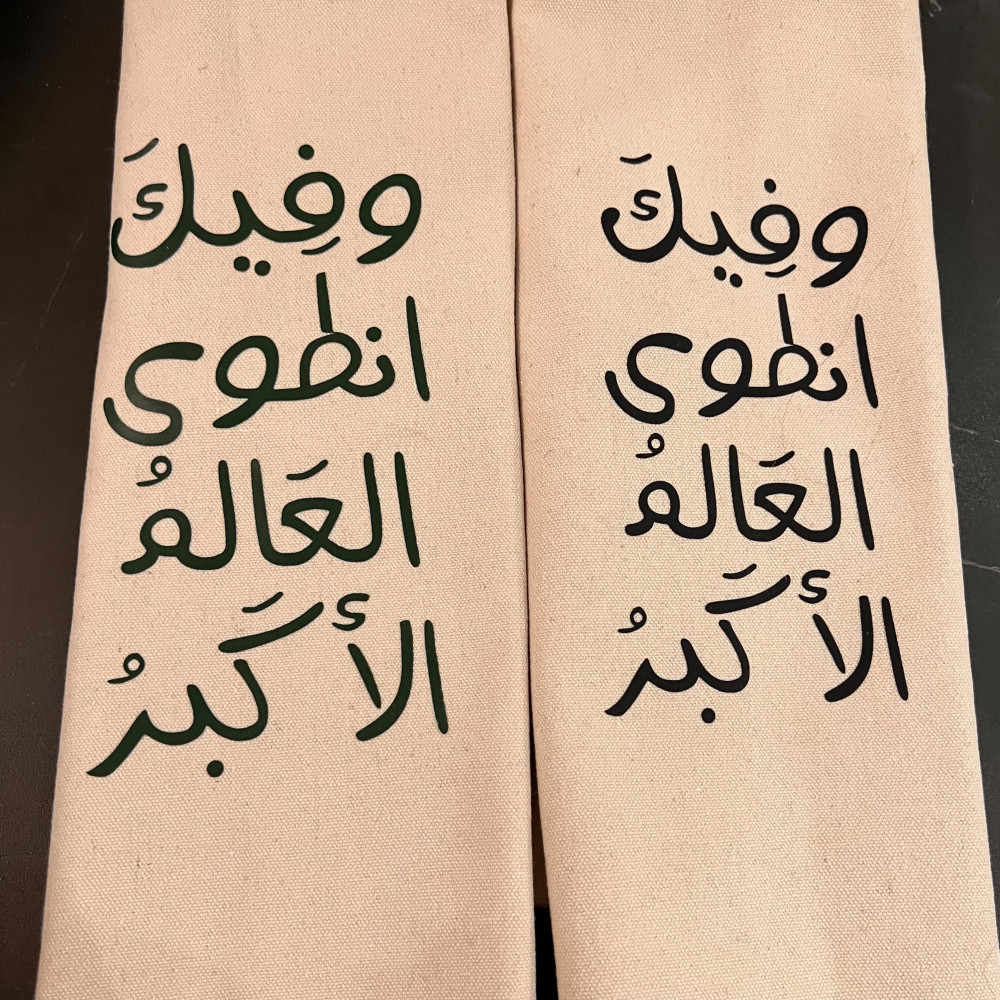 وفِيكَ
انطوي
العَالمُ
الأكَبرُ
وفِيكَ
انطوي
العَالمُ
الأكَبرُ